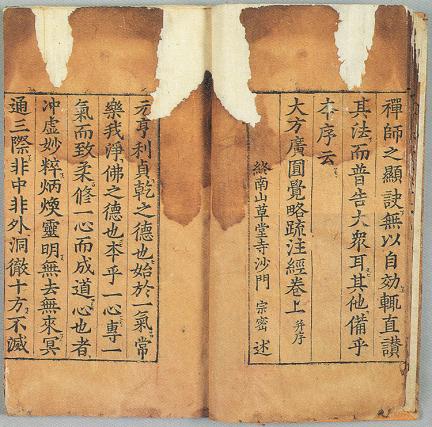 禪師之顯訣無以自効輒直讚
其法而普告大衆耳其他備乎
本序云
大方廣圓覺略疏注經卷上 并序
終南山草堂寺沙門 宗密 述
元亨利貞乾之德也始於一氣常
樂我淨佛之德也本乎一心專一
氣而致柔修一心而成道心也者
冲虛妙粹炳煥靈明無去無來冥
通三際非中非外洞徹十方不滅